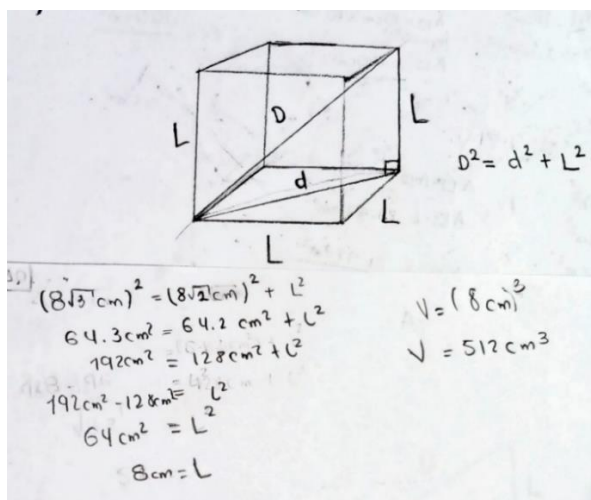 D
L
L
d
D² = d² + L²
L
L
(8√3 cm)² = (8√2 cm)² + L²
64.3cm² = 64.2 cm² + L²
192cm² = 128cm² + L²
192cm² - 128cm² = L²
64cm² = L²
8cm = L
V = (8cm)³
V = 512cm³